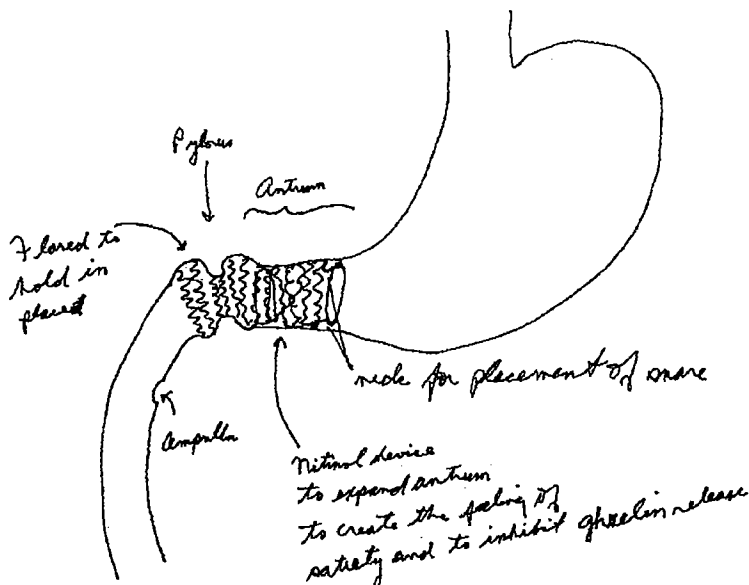 Pylorus
Antrum
Flared to
hold in
placed
Ampulla
neck for placement of snare
Nitinol device
to expand antrum
to create the feeling of
satiety and to inhibit ghrelin release